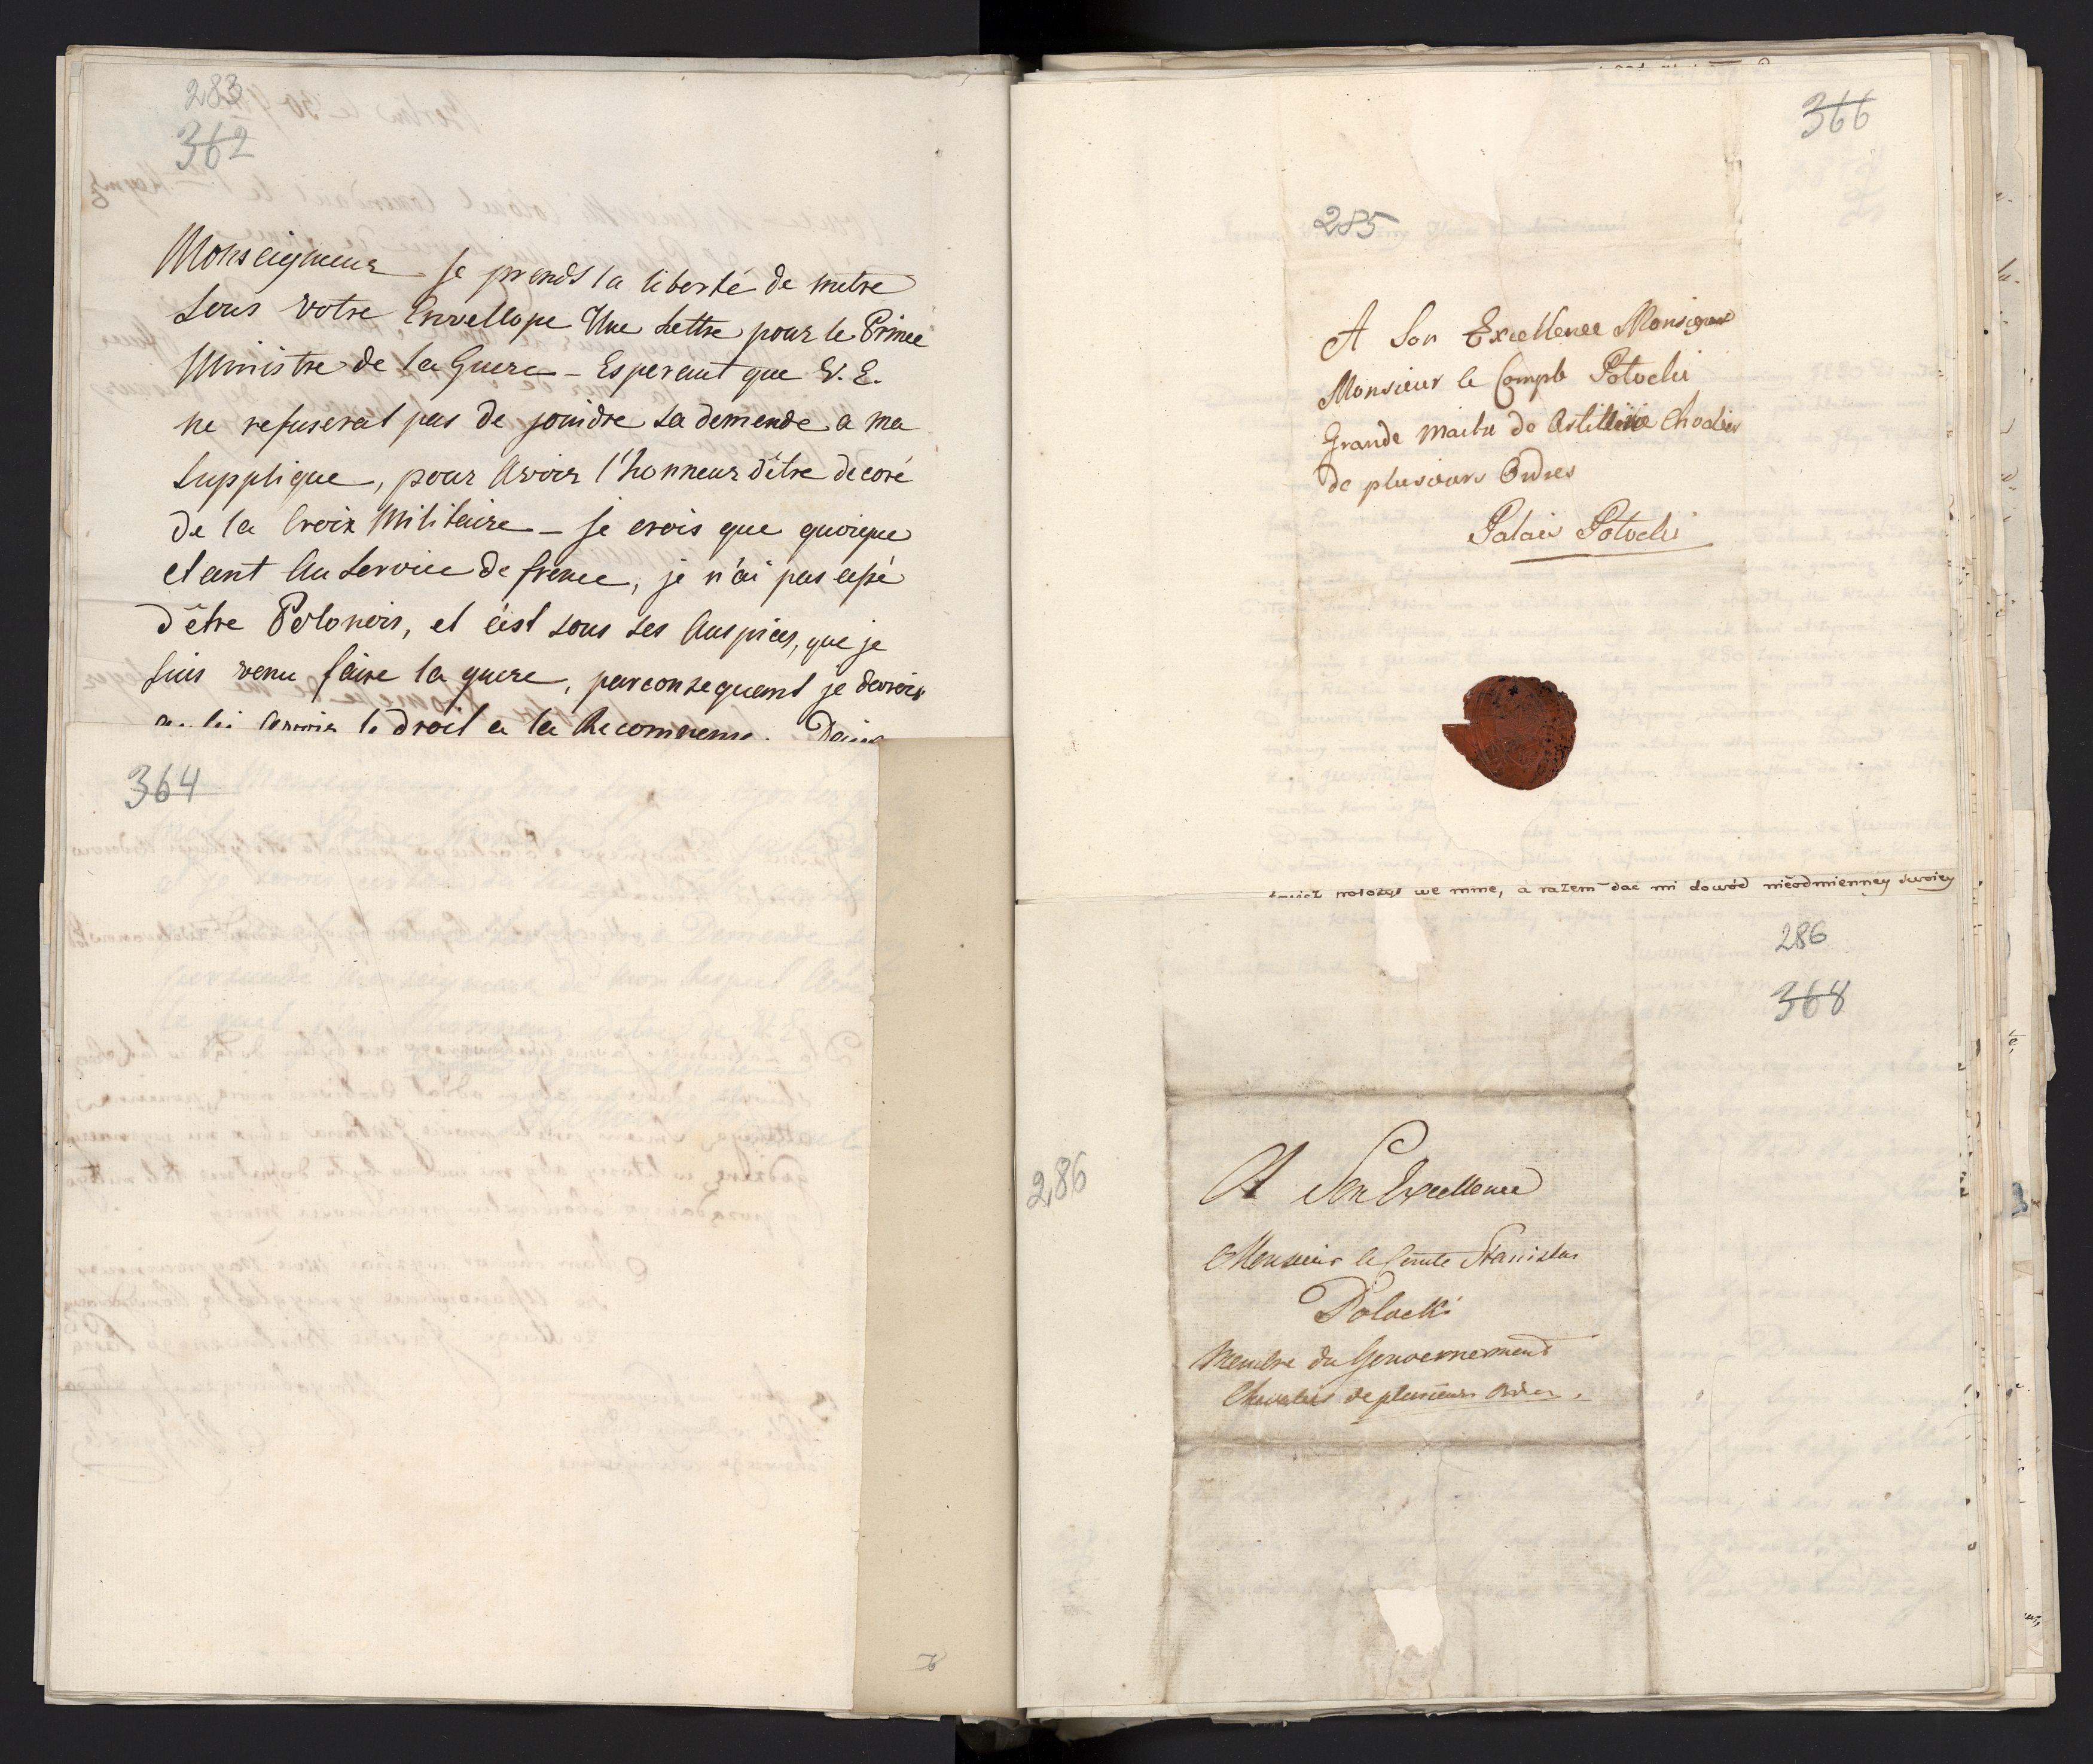 283
362
Monseigneur Je prends la liberté de metre
sous votre Envellope Une Lettre pour le Prince
Ministre de la Guere – Esperant que V. E.
ne refuserat pas de joindre sa demende a ma
supplique, pour Avoir l'honneur d'être decoré
de la Croix Militaire – Je crois que quoique
etant Au Service de france, je n'ai pas cessé
d'être Polonois, et c'est sous ses Auspices, que je
suis venu faire la guere, parconsequent je devrois
Avoir le droit a la Recompense. Daig
364
366
285
A Son Excellence Monsigneur
Monsieur le Compte Potocki
Grande Maitre de Artillerie Chvalier
de plusieurs Ordres
Palais Potocki
położyć we mnie, a razem dać mi dowód nieodmienney swoiey
286
368
286
A Son Excellence
Monsieur le Comte Stanislas
Potocki
Membre du Gouvernement
Chevalier de plusieurs Ordres.